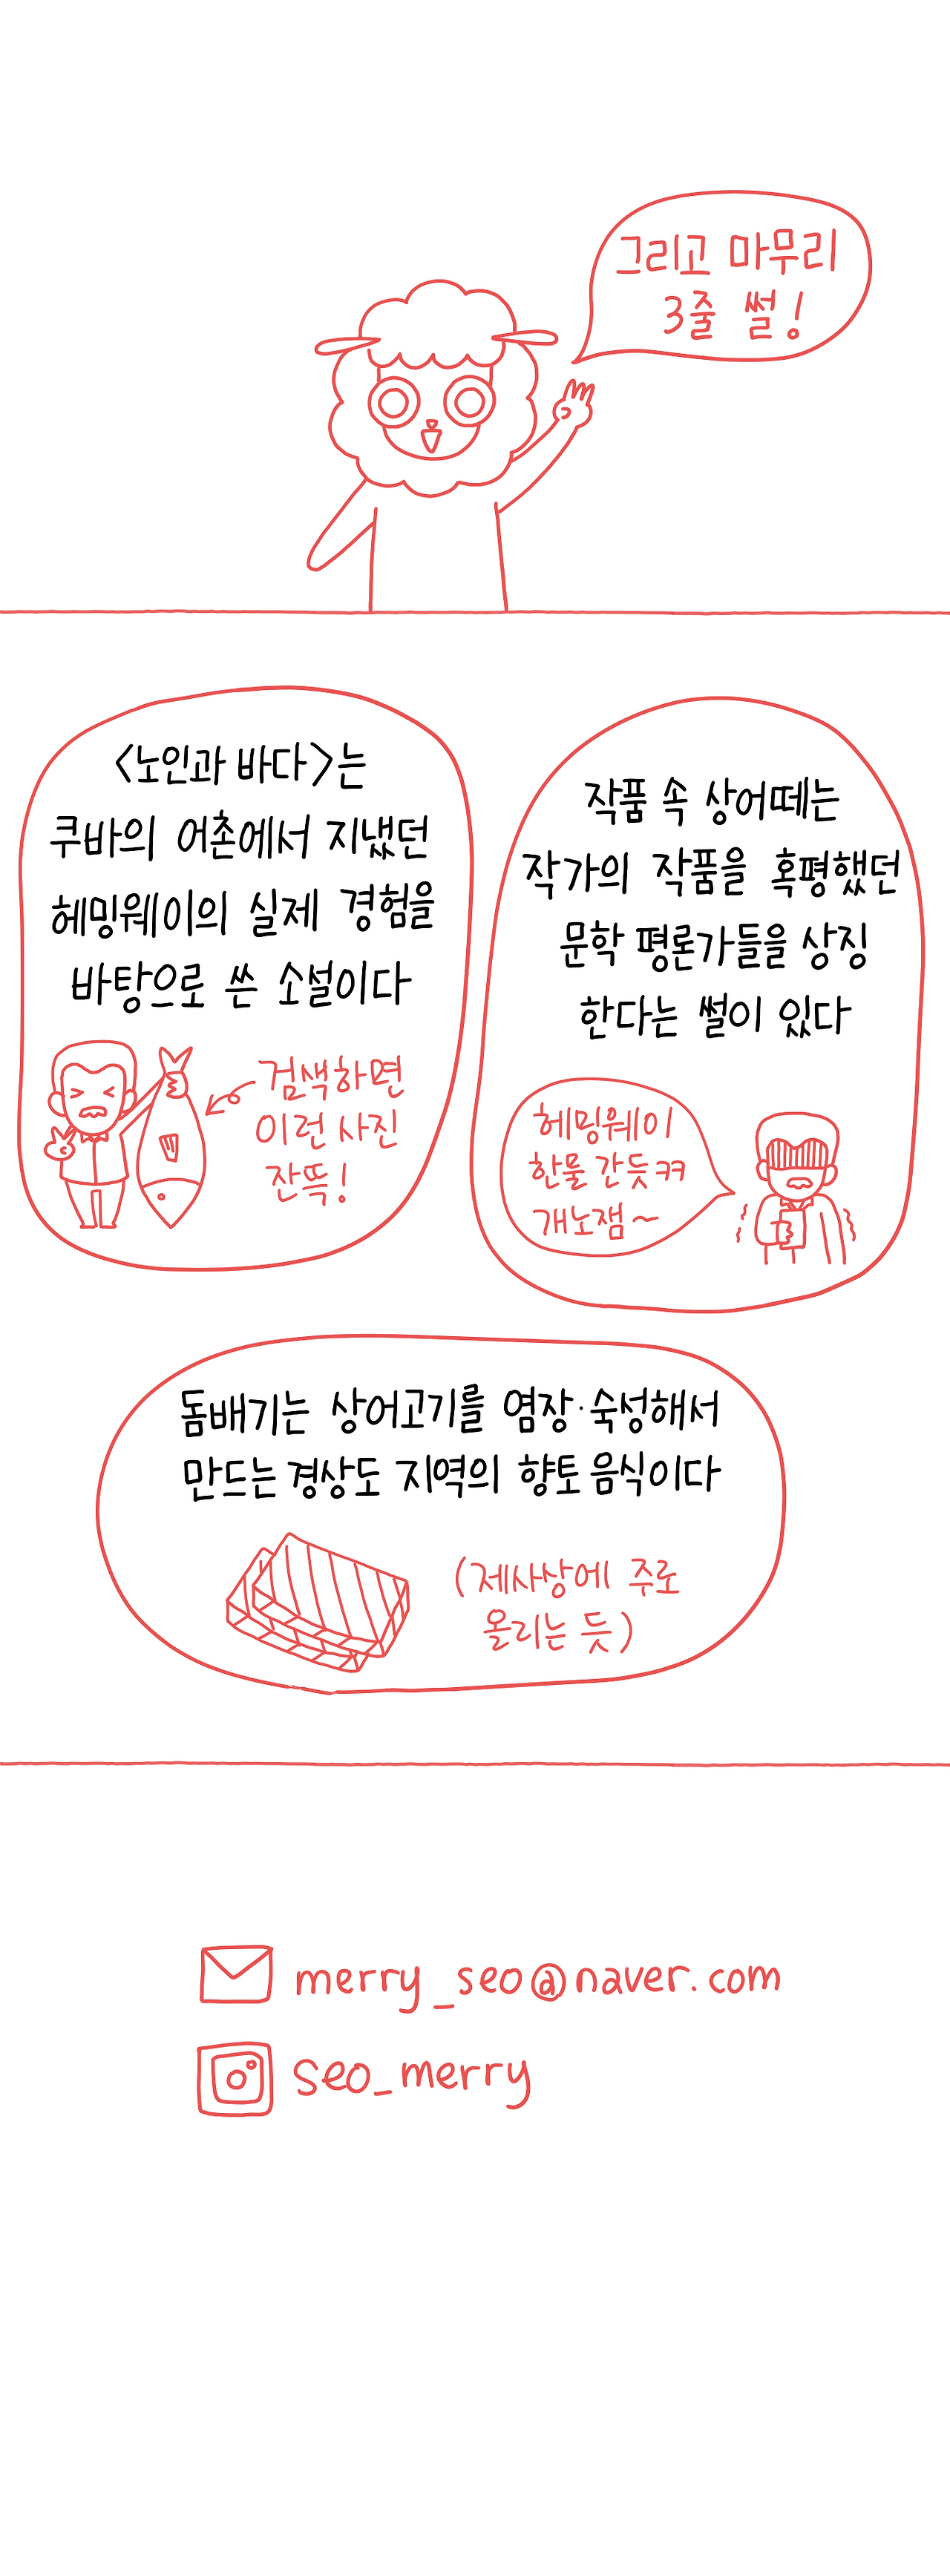 그리고 마무리
3줄 썰!
<노인과 바다>는
쿠바의 어촌에서 지냈던
헤밍웨이의 실제 경험을
바탕으로 쓴 소설이다
검색하면
이런 사진
잔뜩!
작품 속 상어떼는
작가의 작품을 혹평했던
문학 평론가들을 상징
한다는 썰이 있다
헤밍웨이
한물 간듯ㅋㅋ
개노잼~
돔배기는 상어고기를 염장·숙성해서
만드는 경상도 지역의 향토 음식이다
(제사상에 주로
올리는 듯)
merry_seo@naver.com
seo_merry